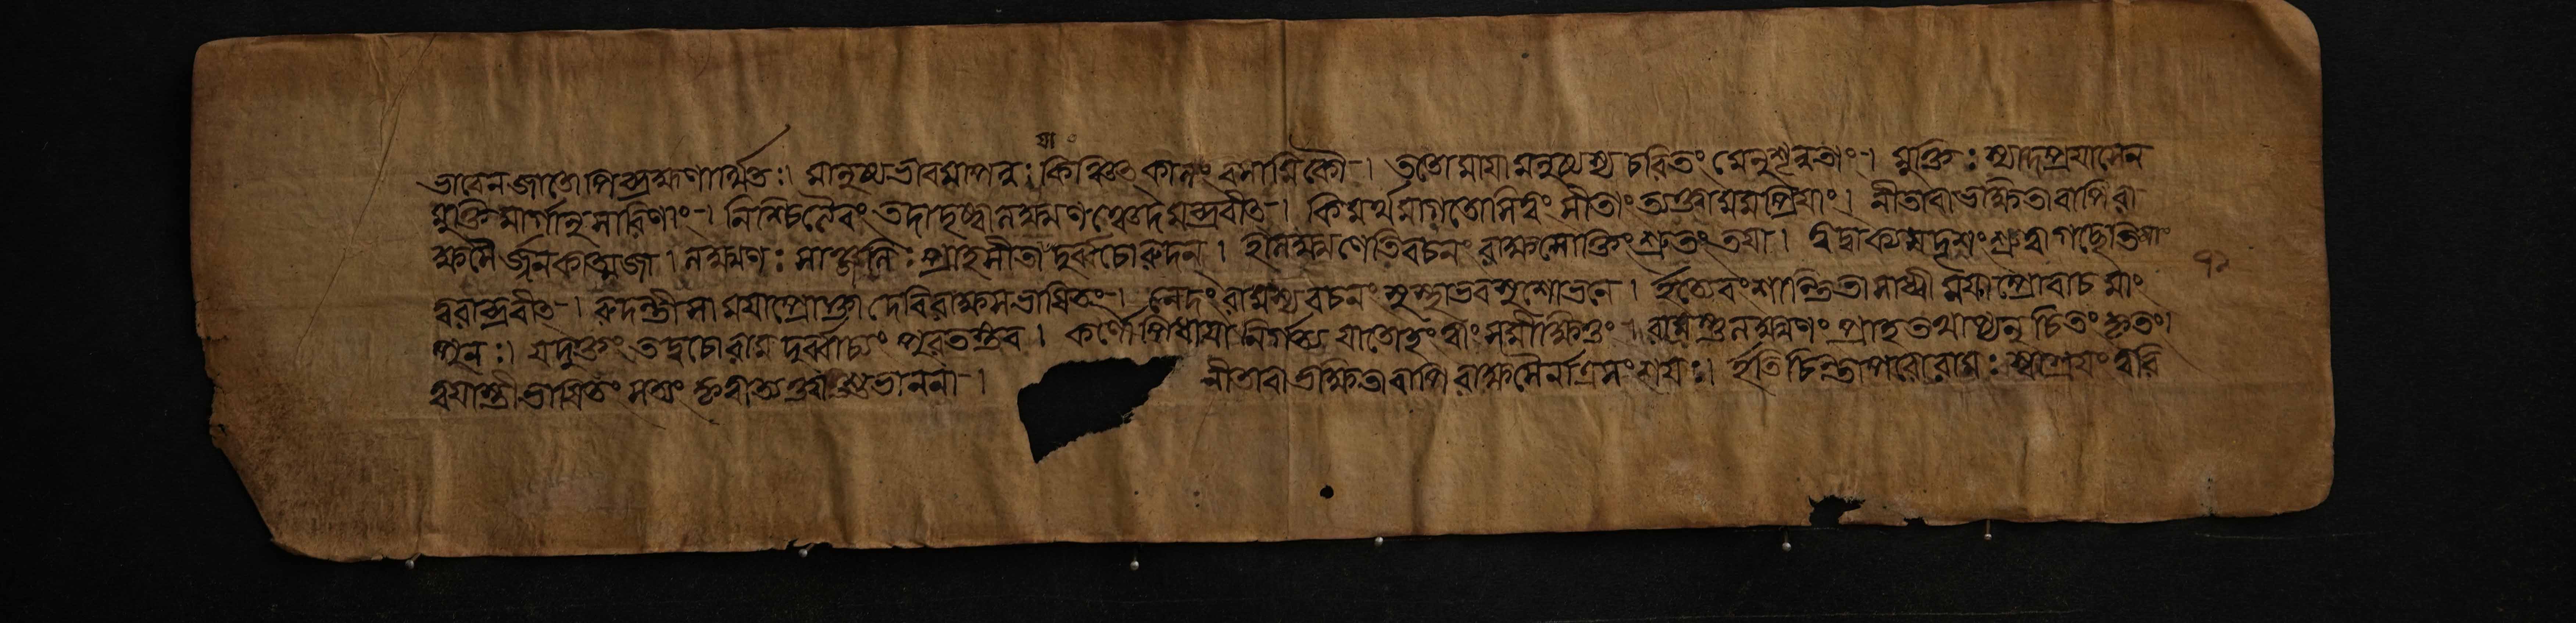 ভাবেনজাতোপিব্রহ্মণার্থিতঃ। মানুষ্যভাবমাপন্নঃ কিঞ্চিৎ কালং বসামিকৌ। ততোমায়ামনুষ্যস্য চরিতং মেনুশৃন্বতাং। মুক্তিঃ স্যাদপ্রয়াসেন
মুক্তিমার্গানুসারিণাং। নিশ্চিত্যৈবং তদাদৃষ্ট্বালক্ষ্মণঞ্চেদমব্রবীৎ। কিমর্থমাগতোসিত্বং সীতাং ত্যক্ত্বামমপ্রিয়াং। নীতাবাভক্ষিতাবাপিরা
ক্ষসৈর্জ্জনকাত্মজা। লক্ষ্মণঃ সাঞ্জলিঃ প্রাহসীতাদুর্ব্বচোরুদন্। হালক্ষ্মণেতিবচনং রাক্ষসোক্তিং শ্রুতং তয়া। ত্বদ্বাক্যসদৃশং শ্রুত্বাগচ্ছেতিমাং
ত্বরাব্রবীৎ। রুদন্তীসাময়াপ্রোক্তাদেবিরাক্ষসভাষিতং। নেদং রামস্যবচনং সুস্থাভবসুশোভনে। ইত্যেবংশান্ত্বিতাসাধ্বীময়াপ্রোবাচ মাং
পুনঃ। যদুক্তং তদ্বচোরামদুর্ব্বাচ্যং পুরতস্তব। কর্ণৌপিধায়ানির্গত্য যাতোহং ত্বাং সমীক্ষিতুং। রামস্তুলক্ষ্মণং প্রাহ তথাপ্যনুচিতং কৃতং।
ত্বয়াস্ত্রীভাষিতং সত্যং কৃত্বাত্যক্ত্বাশুভাননা। নীতাবাভক্ষিতাবাপি রাক্ষসৈর্নাত্রসংশয়ঃ। ইতিচিন্তাপরোরামঃ স্বাশ্রমং ত্বরি